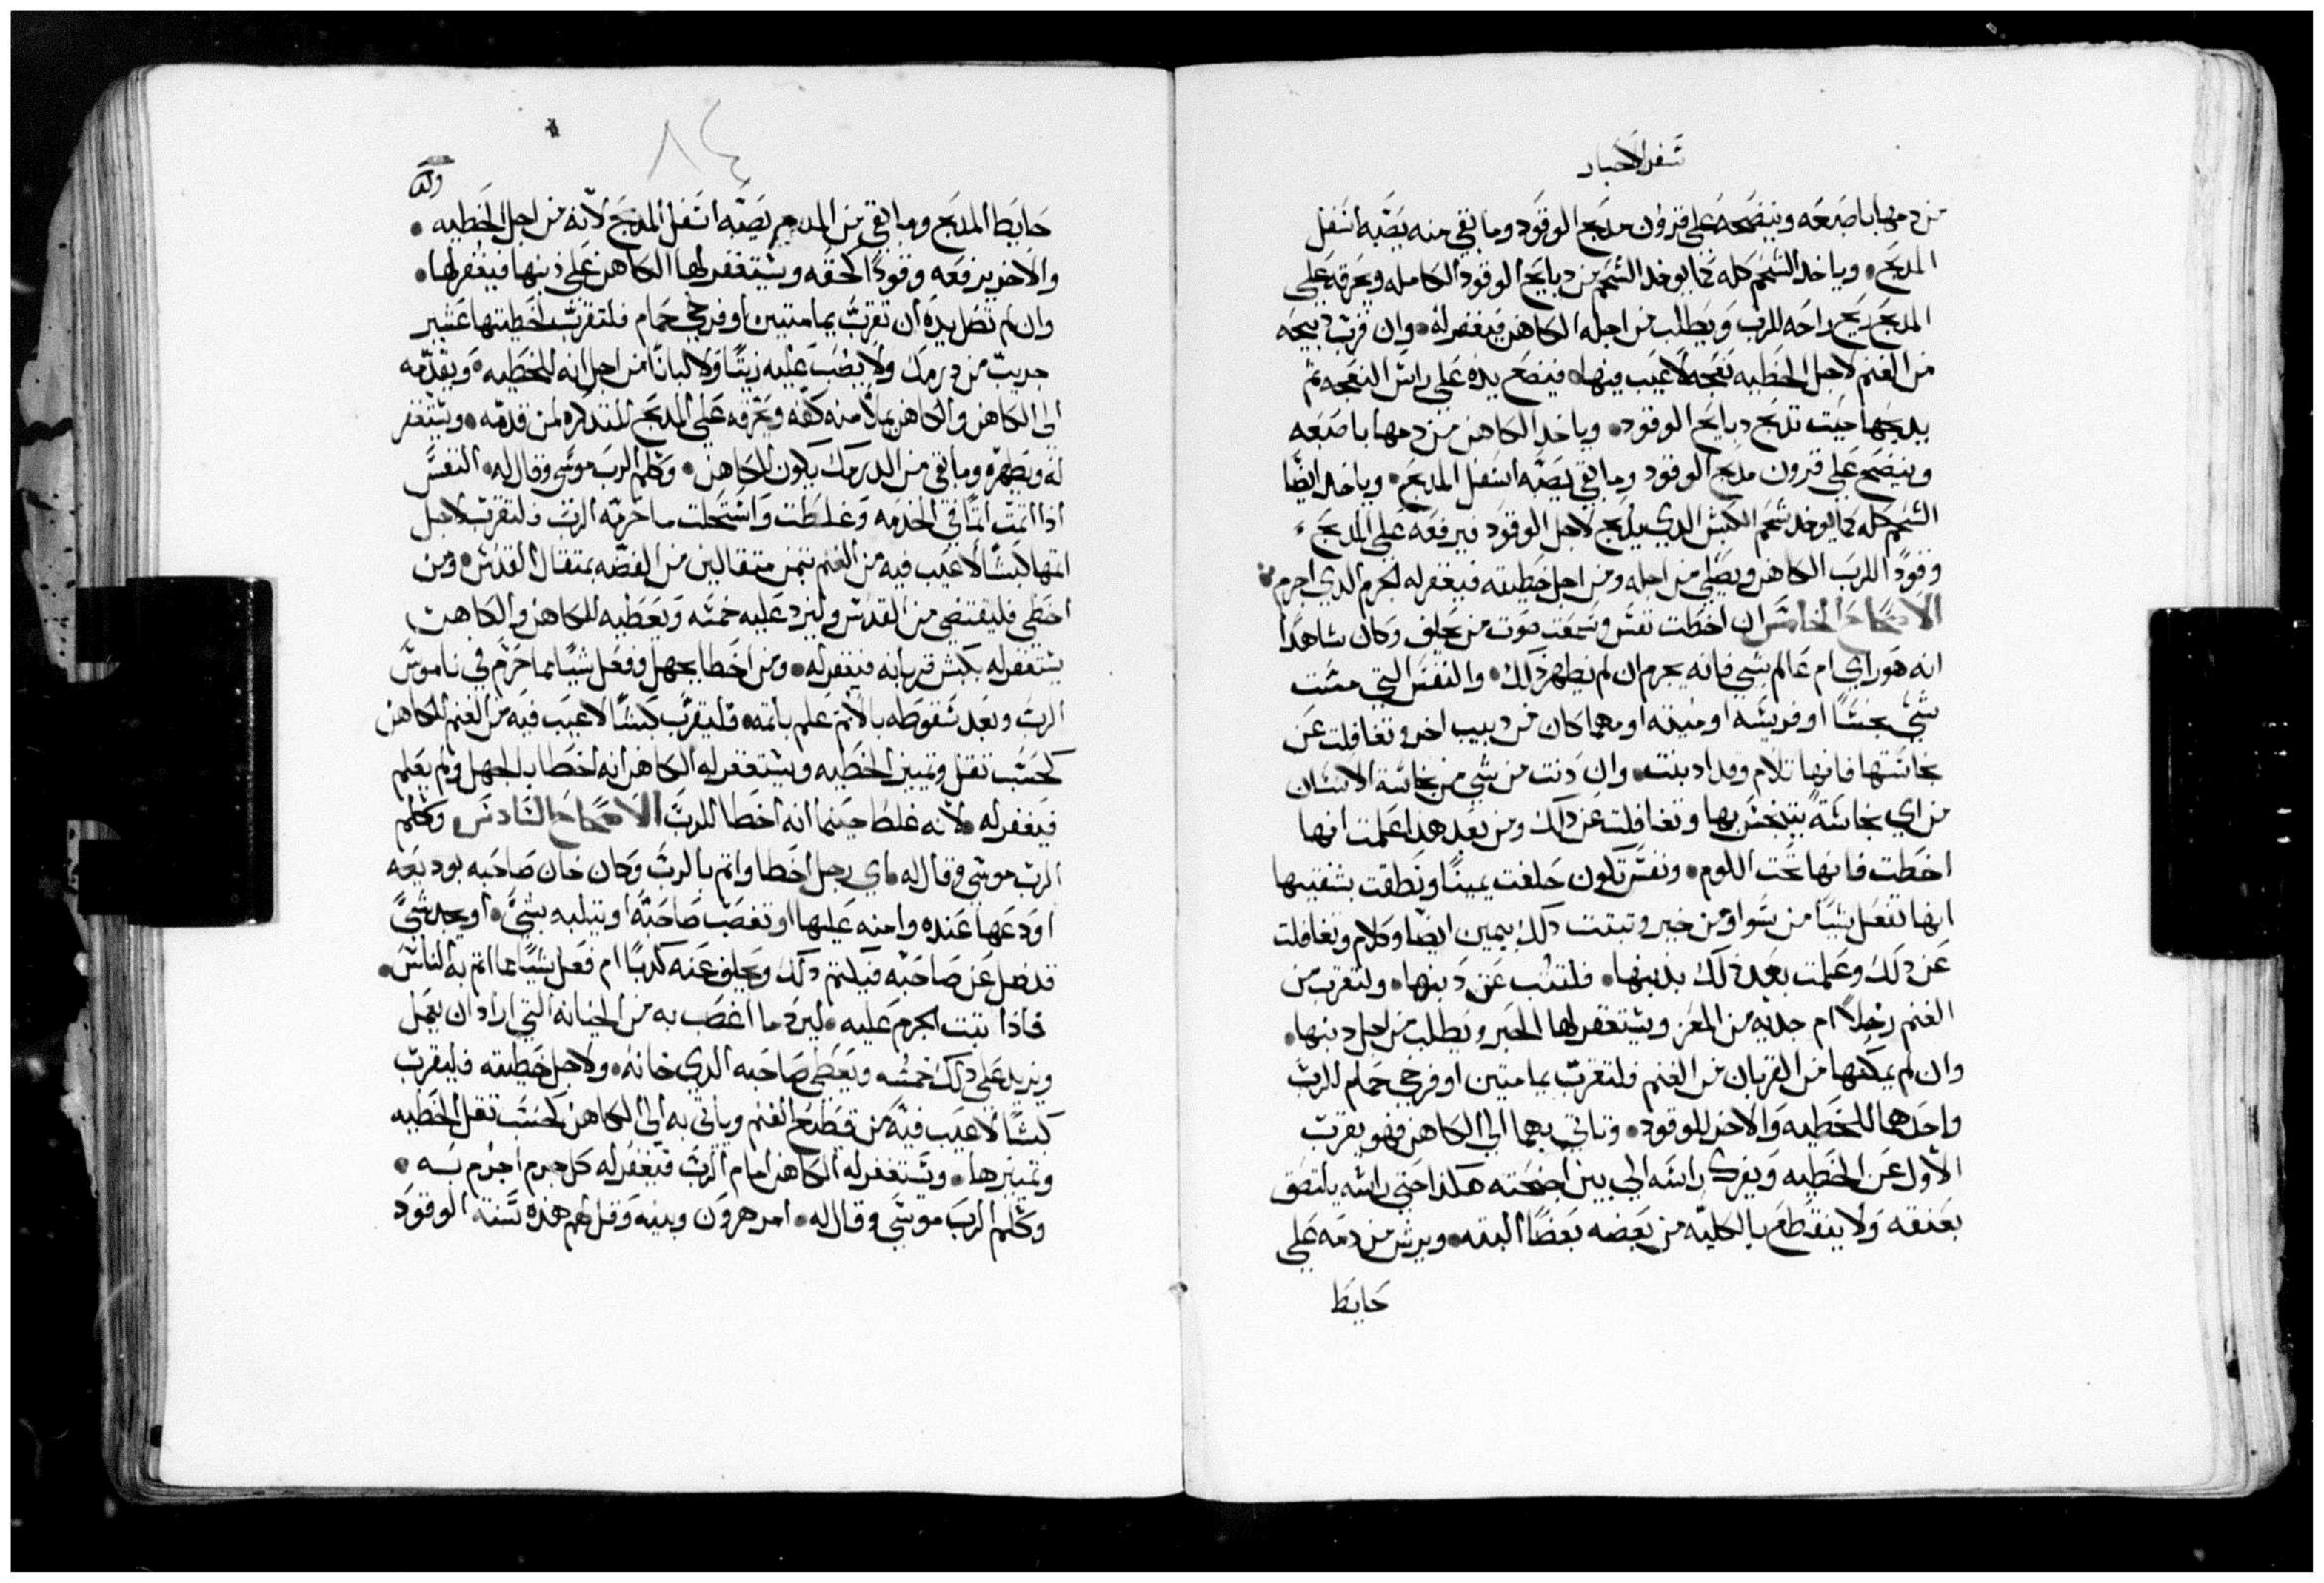 سفر الاحبار
من دمها باصبعه وينضحه علي قرون مدبح الوقود وما بقي منه يصبه اسفل
المدبح وياخد الشحم كله كما يوخد الشحم من دبايح الوقود الكامله ويحرقه علي
المدبح ريح راحه للرب ويطلب من اجله الكاهن فيغفر له وان قرب دبيحه
من الغنم لاجل الخطيه نعجه لا عيب فيها فيضع يده علي راس النعجه ثم
يدبحها حيت تدبح دبايح الوقود وياخد الكاهن من دمها باصبعه
وينضح علي قرون مدبح الوقود وما بقي يصبه اسفل المدبح وياخد ايضا
الشحم كله كما يوخد شحم الكبش الدي يدبح لاجل الوقود فيرفعه علي المدبح
وقودا للرب الكاهن ويصلي من اجله ومن اجل خطيته فيغفر له لجرم الدي اجرم به
الاصحاح الخامس ان اخطت نفس وسمعت صوت من يحلف وكان شاهدا
انه هو راي ام عالم بشي فانه يجرم ان لم يظهر دلك والنفس التي مست
شي نجسا او فريسه او ميته او مهما كان من دبيب اخر وتغافلت عن
نجاستها فانها تلام وقد ادنبت وان دنت من شي من نجاسة الانسان
من اي نجاسة يتنجس بها وتغافلت عن دلك ومن بعد هدا علمت انها
اخطت فانها تحت اللوم ونفس تكون حلفت يمينا ونطقت بشفتيها
انها تفعل شيا من سوا ومن خير وتبتت دلك بيمين ايضا وكلام وتغافلت
عن دلك وعلمت بعد دلك بدبنها فلتتب عن دبنها ولتقرب من
الغنم رخلا ام جديه من المعز ويستغفر لها الحبر ويطلب من اجل دبنها
وان لم يمكنها من القربان من الغنم فلتقرب يمامتين او فرخي حمام للرب
واحدهما للخطيه والاخر للوقود وتاتي بهما الي الكاهن فهو يقرب
الاول عن الخطيه ويفرك راسه الي بين اجنحته هكدا حتي راسه يلتصق
بعنقه ولا ينقطع بالكليه من بعضه بعضا البته ويرش من دمه علي
حايط
٨٤
حايط المدبح وما بقي من الدم يصبه اسفل المدبح لانه من اجل الخطيه
والاخر يرفعه وقودا لحقه ويستغفر لها الكاهن علي دبنها فيغفر لها
وان لم تصل يده ان تقرب يمامتين او فرخي حمام فلتقرب لخطيتها عشير
جريب من درمك ولا يصب عليه زيتا ولا لبانا من اجل انه للخطيه ويقدمه
الي الكاهن والكاهن يملا منه كفه ويحرقه علي المدبح لتدكره لمن قدمه ويستغفر
له ويطهره وما بقي من الدرمك يكون للكاهن وكلم الرب موسي وقال له النفس
ادا اتمت اتما في الخدمه وغلطت واستحلت ما حرمه الرب فلتقرب لاجل
اتمها كبشا لا عيب فيه من الغنم بتمن متقالين من الفضه بمتقال القدس ومن
اخطي فليقتضي من القدس وليزد عليه خمسه ويعطيه للكاهن والكاهن
يستغفر له بكبش قربانه فيغفر له ومن اخطا بجهل وفعل شيا مما حرم في ناموس
الرب وبعد سقوطه بالاتم علم باتمه فليقرب كبشا لا عيب فيه من الغنم للكاهن
كحسب تقل وتمييز الخطيه ويستغفر له الكاهن انه اخطا بالجهل ولم يعلم
فيغفر له لانه غلط حينما انه اخطا للرب الاصحاح السادس وكلم
الرب موسي وقال له اي رجل اخطا واتم بالرب وكان خان صاحبه بوديعه
اودعها عنده وامنه عليها او تغصب صاحبه او يتلبه بشي او يجد شي
قد ضل عن صاحبه فيكتم دلك ويحلف عنه كدبا ام فعل شيا مما اتم به الناس
فادا تبت الجرم عليه ليرد ما اغصب به من الخيانه التي اراد ان يعمل
ويزيد علي دلك خمسه ويعطي صاحبه الدي خانه ولاجل خطيته فليقرب
كبشا لا عيب فيه من قطيع الغنم وياتي به الي الكاهن كحسب تقل الخطيه
وتمييزها ويستغفر له الكاهن امام الرب فيغفر له كل جرم اجرم به
وكلم الرب موسي وقال له امر هرون وبنيه وقل لهم هده سنة الوقود